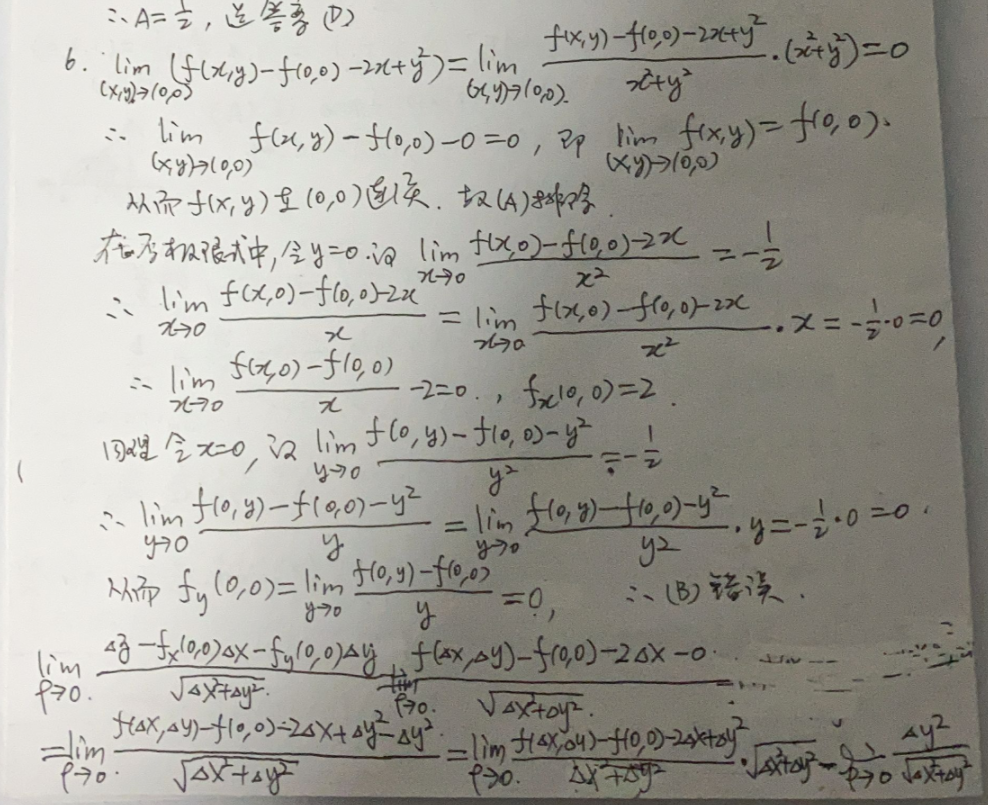 ∴A=1/2, 选答案(D)
6. lim_{(x,y)→(0,0)} (f(x,y)-f(0,0)-2x+y²)=lim_{(x,y)→(0,0)} (f(x,y)-f(0,0)-2x+y²)/(x²+y²)·(x²+y²)=0
∴ lim_{(x,y)→(0,0)} f(x,y)-f(0,0)-0=0, 即 lim_{(x,y)→(0,0)} f(x,y)=f(0,0).
从而f(x,y)在(0,0)连续. 故(A)排除.
极限式中,令y=0.设 lim_{x→0} (f(x,0)-f(0,0)-2x)/x² =-1/2
∴ lim_{x→0} (f(x,0)-f(0,0)-2x)/x = lim_{x→0} (f(x,0)-f(0,0)-2x)/x²·x=-1/2·0=0,
∴ lim_{x→0} (f(x,0)-f(0,0))/x -2=0., f_x(0,0)=2.
同理令x=0,设 lim_{y→0} (f(0,y)-f(0,0)-y²)/y² =-1/2
∴ lim_{y→0} (f(0,y)-f(0,0)-y²)/y = lim_{y→0} (f(0,y)-f(0,0)-y²)/y²·y=-1/2·0=0.
从而 f_y(0,0)=lim_{y→0} (f(0,y)-f(0,0))/y=0, ∴(B)错误.
lim_{ρ→0} (Δz-f_x(0,0)Δx-f_y(0,0)Δy)/√(Δx²+Δy²) = lim_{ρ→0} (f(Δx,Δy)-f(0,0)-2Δx-0)/√(Δx²+Δy²)
=lim_{ρ→0} (f(Δx,Δy)-f(0,0)-2Δx+Δy²-Δy²)/√(Δx²+Δy²) =lim_{ρ→0} (f(Δx,Δy)-f(0,0)-2Δx+Δy²)/(Δx²+Δy²)·√(Δx²+Δy²)-lim_{ρ→0} Δy²/√(Δx²+Δy²)